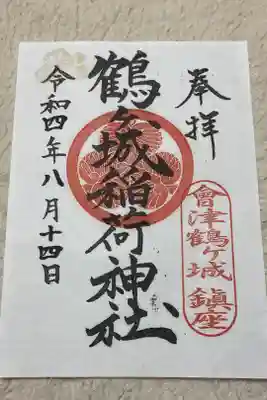 奉拝
會津鶴ヶ城 鎮座
鶴ヶ城稲荷神社
令和四年八月十四日